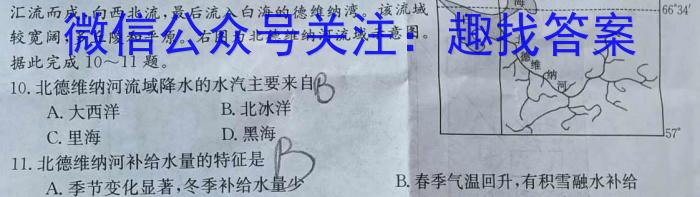 汇流而成,向西北流,最后流入白海的德维纳湾。该流域
较宽阔,
微信公众号关注:趣找答案
据此完成10~11题。
10.北德维纳河流域降水的水汽主要来自 B
A.大西洋 B.北冰洋
C.里海 D.黑海
11.北德维纳河补给水量的特征是 B
A.季节变化显著,冬季补给水量少 B.春季气温回升,有积雪融水补给
海
66°34′
德维纳河
57°